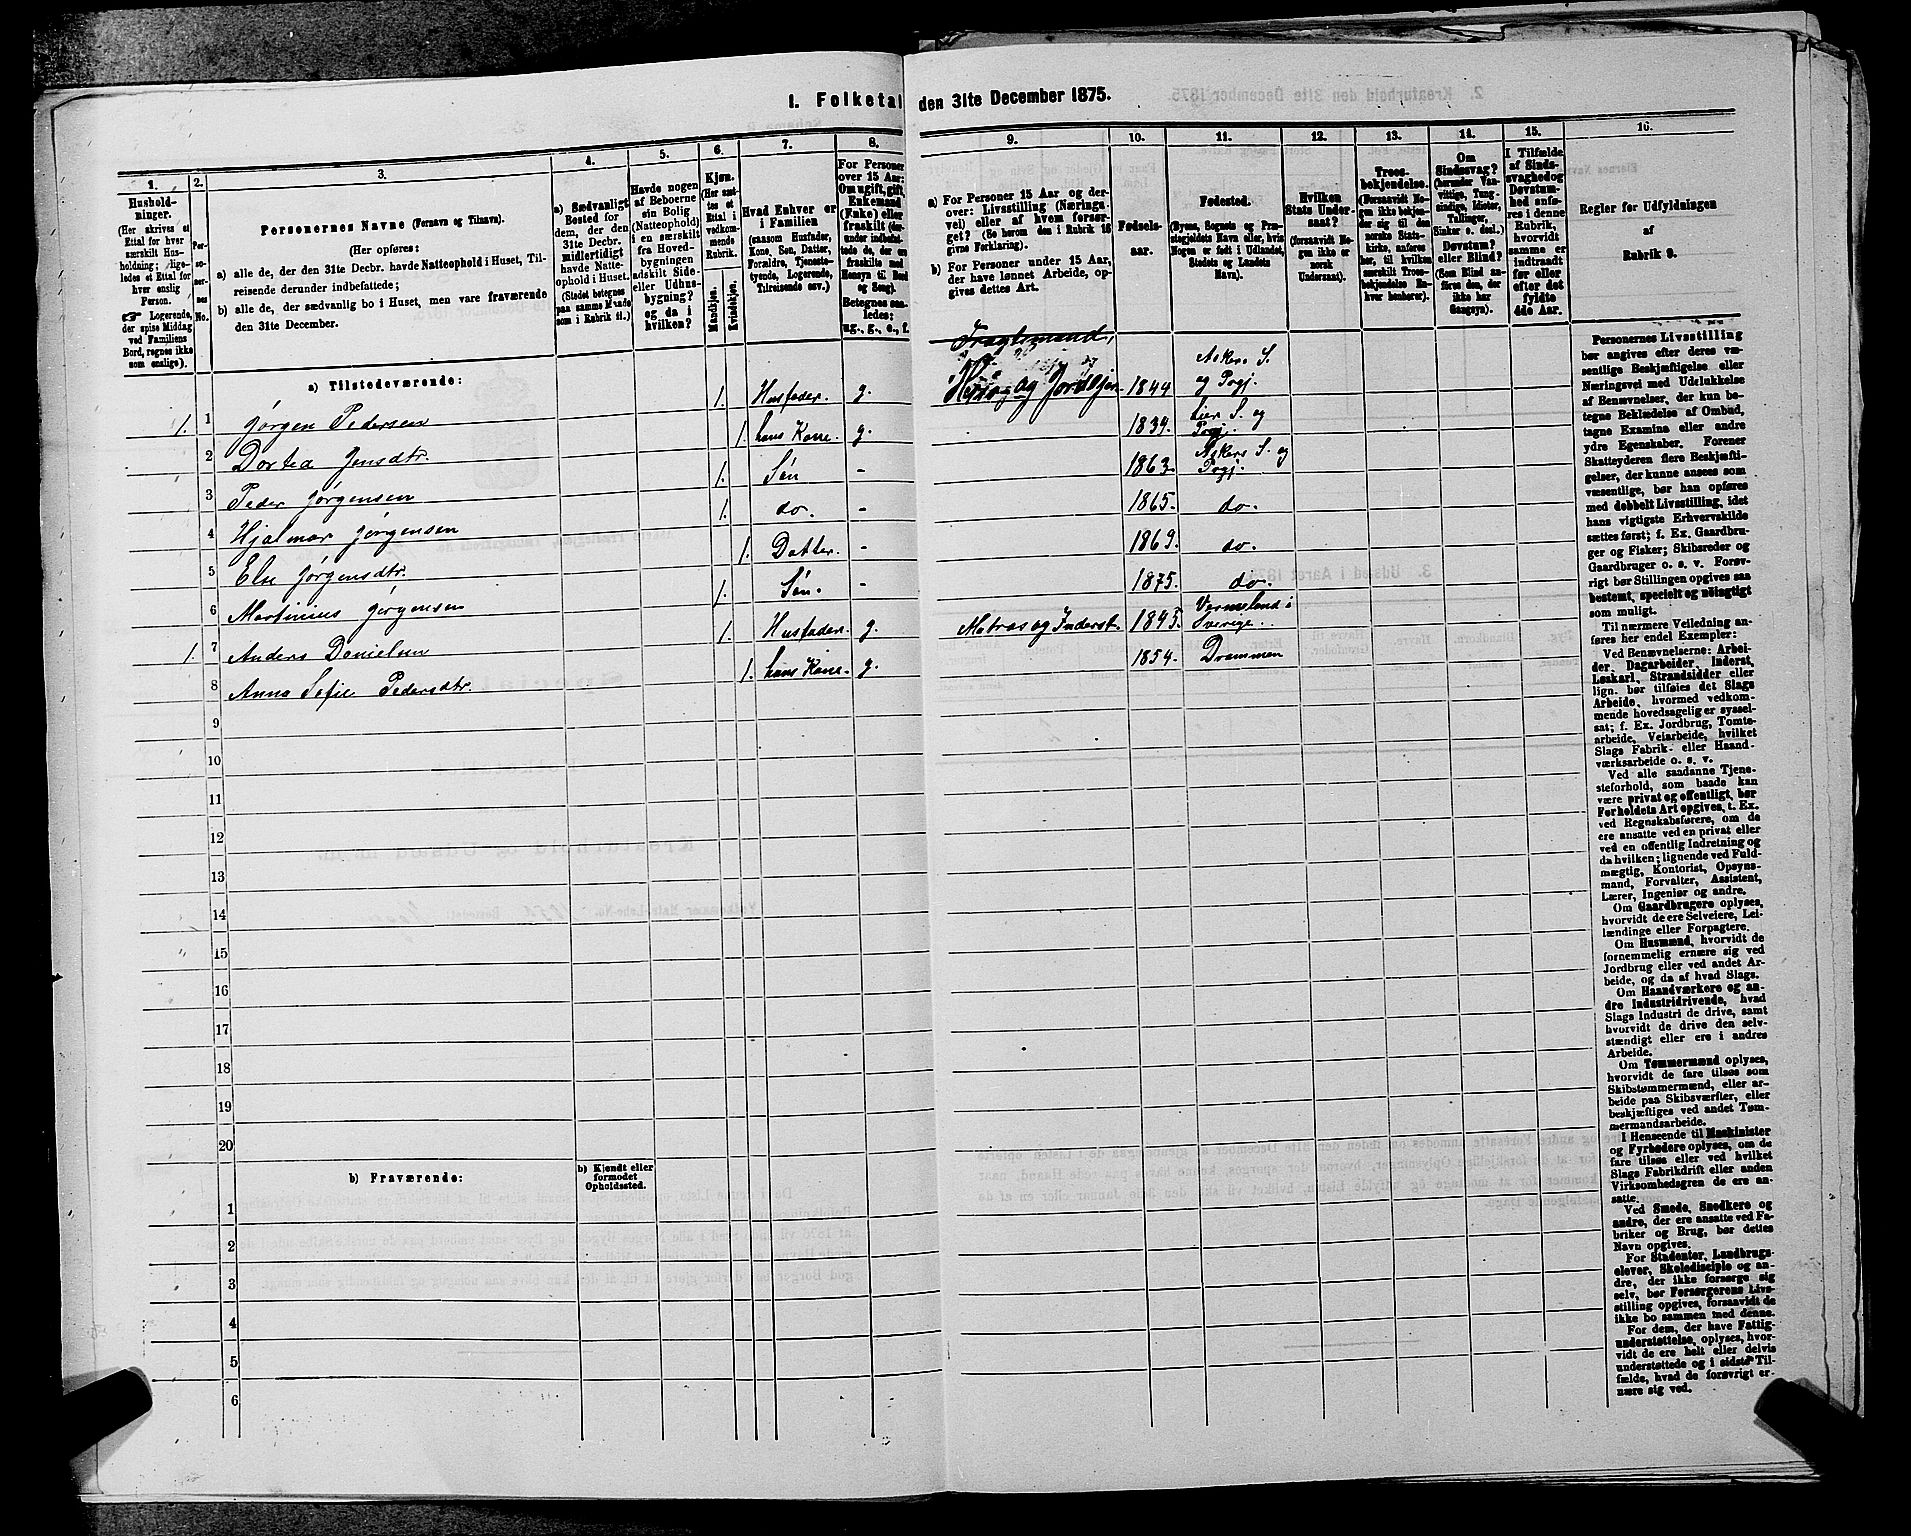 1. Folketal den 31te December 1875.
1. 2. 3. 4. 5. 6. 7. 8. 9. 10. 11. 12. 13. 14. 15. 16.
Hushold-
ninger.
(Her skrives et
Ettal for hver
særskilt Hus-
holdning; lige-
ledes et Ettal for
hver enslig
Person.
☛ Logerende,
der spise Middag
ved Familiens
Bord, regnes ikke
som enslige).
Per-
so-
ner-
nes
No.
Personernes Navne (Fornavn og Tilnavn).
(Her opføres:
a) alle de, der den 31te Decbr. havde Natteophold i Huset, Til-
reisende derunder indbefattede;
b) alle de, der sædvanlig bo i Huset, men vare fraværende
den 31te December.
a) Sædvanligt
Bosted for
dem, der den
31te Decbr.
midlertidigt
havde Natte-
ophold i Huset.
(Stedet betegnes
paa samme Maade
som i Rubrik 11.)
Havde nogen
af Beboerne
sin Bolig
(Natteophold)
i en særskilt
fra Hoved-
bygningen
adskilt Side-
eller Udhus-
bygning?
og da i
hvilken?
Kjøn.
(Her sæt-
tes et
Ettal i
vedkom-
mende
Rubrik.
Mandkjøn.
Kvindekjøn.
Hvad Enhver er
i Familien
(saasom Husfader,
Kone, Søn, Datter,
Forældre, Tjeneste-
tyende, Logerende,
Tilreisende osv.)
For Personer
over 15 Aar:
Om ugift, gift,
Enkemand
(Enke) eller
fraskilt (der-
under indbefat-
tede de, der ere
fraskilte med
Hensyn til Bord
og Seng).
Betegnes saa-
ledes:
ug., g., e., f.
a) For Personer 15 Aar og der-
over: Livsstilling (Nærings-
vei) eller af hvem forsør-
get? (Se herom den i Rubrik 16
givne Forklaring).
b) For Personer under 15 Aar,
der have lønnet Arbeide, op-
gives dettes Art.
Fødsels-
aar.
Fødested.
(Byens, Sognets og Præ-
stegjeldets Navn eller, hvis
Nogen er født i Udlandet,
Stedets og Landets
Navn).
Hvilken
Stats Under-
saat?
(forsaavidt No-
gen ikke er
norsk
Undersaat).
Troes-
bekjendelse.
(Forsaavidt No-
gen ikke bekjen-
der sig til den
norske Stats-
kirke, anføres
her, til hvilken
særskilt Troes-
bekjendelse En-
hver henhører).
Om
Sindssvag?
(herunder Van-
vittige, Tung-
sindige, Idioter,
Tullinger,
Sinker o. desl.)
Døvstum?
eller Blind?
(Som Blind an-
føres den, der
ikke har
Gangsyn).
I Tilfælde
af Sinds-
svaghed og
Døvstum-
hed anfø-
res i denne
Rubrik,
hvorvidt
samme er
indtraadt
før eller
efter det
fyldte
4de Aar.
Regler før Udfyldningen
af
Rubrik 9.
a) Tilstedeværende:
1. 1 Jørgen Pedersen 1. Husfader. g. 1844 Askers S. og Pgj.
2 Dortea Jensdtr. 1. hans Kone. g. 1839. Lier S. og Pgj.
3 Peder Jørgensen 1. Søn - 1863. Askers S. og Pgj.
4 Hjalmar Jørgensen 1. do. - 1865. do.
5 Else Jørgensdtr. 1. Datter. - 1869. do.
6 Martinius Jørgensen 1. Søn. - 1875. do.
1. 7 Anders Danielsen 1. Husfader. g. Matros og Inderst. 1843. Vermeland i Sverige.
8 Anna Sofie Pedersdtr. 1. hans Kone. g. 1854. Drammen
9
10
11
12
13
14
15
16
17
18
19
20
b) Fraværende:
b) Kjendt eller
formodet
Opholdssted.
1
2
3
4
5
6
Personernes Livsstilling
bør angives efter deres væ-
sentlige Beskjæftigelse eller
Næringsvei med Udelukkelse
af Benævnelser, der kun be-
tegne Beklædelse af Ombud,
tagne Examina eller andre
ydre Egenskaber. Forener
Skatteyderen flere Beskjæfti-
gelser, der kunne ansees som
væsentlige, bør han opføres
med dobbelt Livsstilling, idet
hans vigtigste Erhvervskilde
sættes først; f. Ex. Gaardbru-
ger og Fisker; Skibsreder og
Gaardbruger o. s. v. Forøv-
rigt bør Stillingen opgives saa
bestemt, specielt og nøiagtigt
som muligt.
Til nærmere Veiledning an-
føres her endel Exempler:
Ved Benævnelserne: Arbei-
der, Dagarbeider, Inderst,
Løskarl, Strandsidder eller
lign. bør tilføies det Slags
Arbeide, hvormed vedkom-
mende hovedsagelig er syssel-
sat; f. Ex. Jordbrug, Tomte-
arbeide, Veiarbeide, hvilket
Slags Fabrik- eller Haand-
værksarbeide o. s. v.
Ved alle saadanne Tjene-
steforhold, som baade kan
være privat og offentligt, bør
Forholdets Art opgives, t. Ex.
ved Regnskabsførere, om de
ere ansatte ved en privat eller
ved en offentlig Indretning og
da hvilken; lignende ved Fuld-
mægtig, Kontorist, Opsyns-
mand, Forvalter, Assistent,
Lærer, Ingeniør og andre.
Om Gaardbrugere oplyses,
hvorvidt de ere Selveiere, Lei-
lændinge eller Forpagtere.
Om Husmænd, hvorvidt de
fornemmelig ernære sig ved
Jordbrug eller ved andet Ar-
beide, og da af hvad Slags.
Om Haandværkere og an-
dre Industridrivende, hvad
Slags Industri de drive, samt
hvorvidt de drive den selv-
stændigt eller ere i andres
Arbeide.
Om Tømmermænd oplyses,
hvorvidt de fare tilsøs som
Skibstømmermænd, eller ar-
beide paa Skibsværfter, eller
beskjæftiges ved andet Tøm-
mermandsarbeide.
I Henseende til Maskinister
og Fyrbødere oplyses, om de
fare tilsøs eller ved hvilket
Slags Fabrikdrift eller anden
Virksomhedsgren de ere an-
satte.
Ved Smede, Snedkere og
andre, der ere ansatte ved Fa-
briker og Brug, bør dettes
Navn opgives.
For Studenter, Landbrugs-
elever, Skoledisciple og an-
dre, der ikke forsørge sig
selv, bør Forsørgerens Livs-
stilling opgives, forsaavidt de
ikke bo sammen med denne.
For dem, der have Fattig-
understøttelse, oplyses, hvor-
vidt de ere helt eller delvis
understøttede og i sidste Til-
fælde, hvad de forøvrigt er-
nære sig ved.